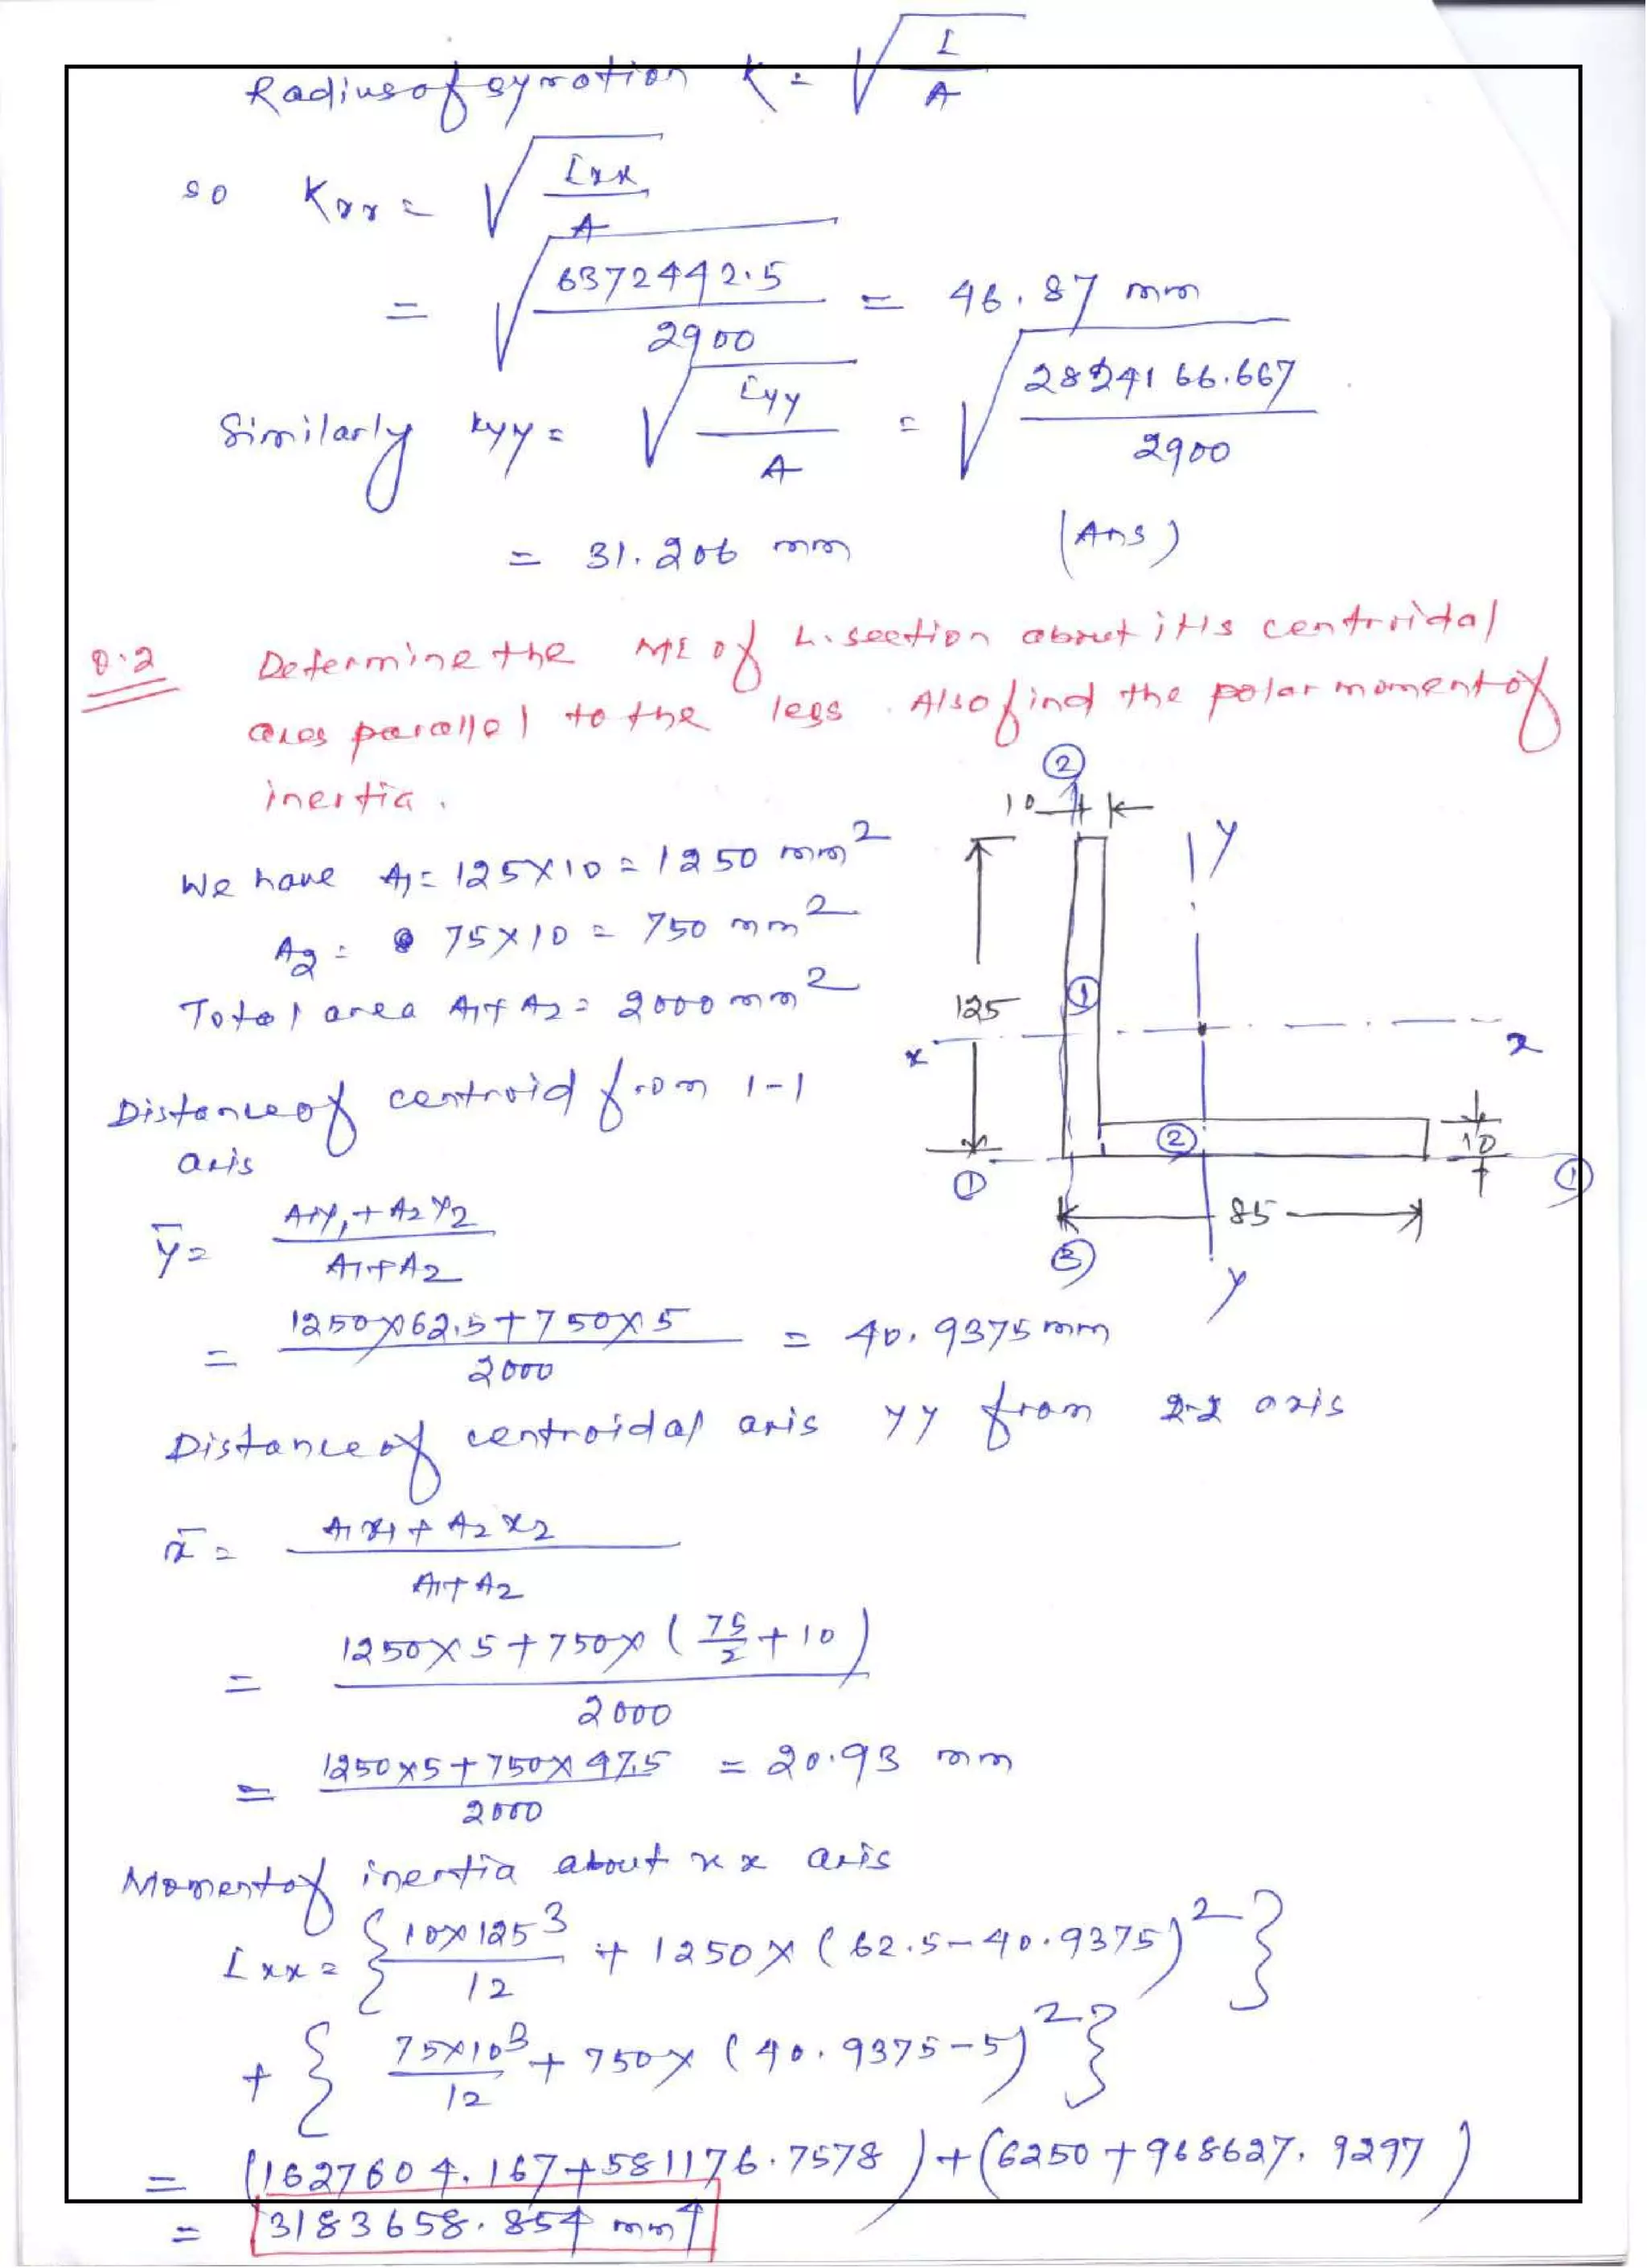 Radius of gyration K = √(I/A)
so Kxx = √(Ixx/A)
= √(6372442.5/2900) = 46.87 mm
Similarly kyy = √(Iyy/A) = √(2824166.667/2900)
= 31.206 mm (Ans)
Q.2 Determine the MI of L.section about it's centroidal
axes parallel to the legs. Also find the polar moment of
inertia.
We have A1 = 125×10 = 1250 mm²
A2 = 75×10 = 750 mm²
Total area A1+A2 = 2000 mm²
Distance of centroid from 1-1
axis
ȳ = (A1y1+A2y2)/(A1+A2)
= (1250×62.5+750×5)/2000 = 40.9375 mm
②
10
y
125
①
x
x
②
10
①
①
85
②
y
Distance of centroidal axis yy from 2-2 axis
x̄ = (A1x1+A2x2)/(A1+A2)
= (1250×5+750×(75/2+10))/2000
= (1250×5+750×47.5)/2000 = 20.93 mm
Moment of inertia about xx axis
Ixx = {10×125³/12 + 1250×(62.5-40.9375)²}
+ {75×10³/12 + 750×(40.9375-5)²}
= (1627604.167+581176.7578)+(6250+968627.9297)
= 3183658.854 mm⁴